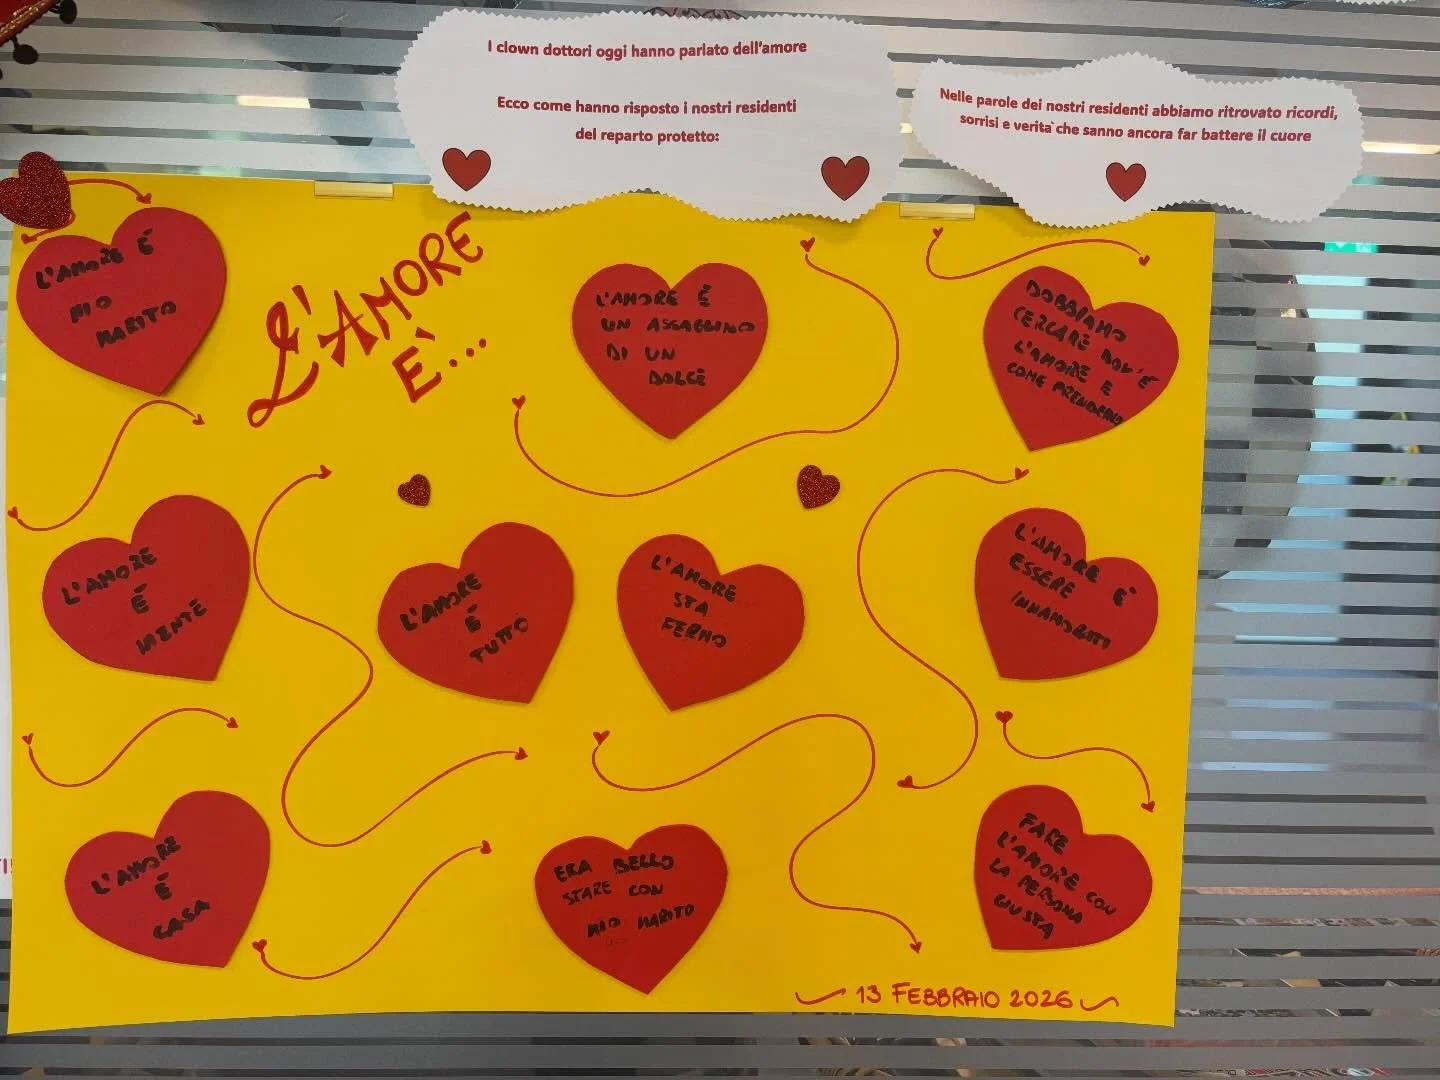 I clown dottori oggi hanno parlato dell'amore
Ecco come hanno risposto i nostri residenti
del reparto protetto:
Nelle parole dei nostri residenti abbiamo ritrovato ricordi,
sorrisi e verita` che sanno ancora far battere il cuore
L'AMORE
È...
L'AMORE É
MIO
MARITO
L'AMORE É
UN ASSAGGINO
DI UN
DOLCE
DOBBIAMO
CERCARE DOV'É
L'AMORE E
COME PRENDERLO
L'AMORE
É
NIENTE
L'AMORE
É
TUTTO
L'AMORE
STA
FERMO
L'AMORE É
ESSERE
INNAMORATI
L'AMORE
É
CASA
ERA BELLO
STARE CON
MIO MARITO
FARE
L'AMORE CON
LA PERSONA
GIUSTA
13 FEBBRAIO 2026